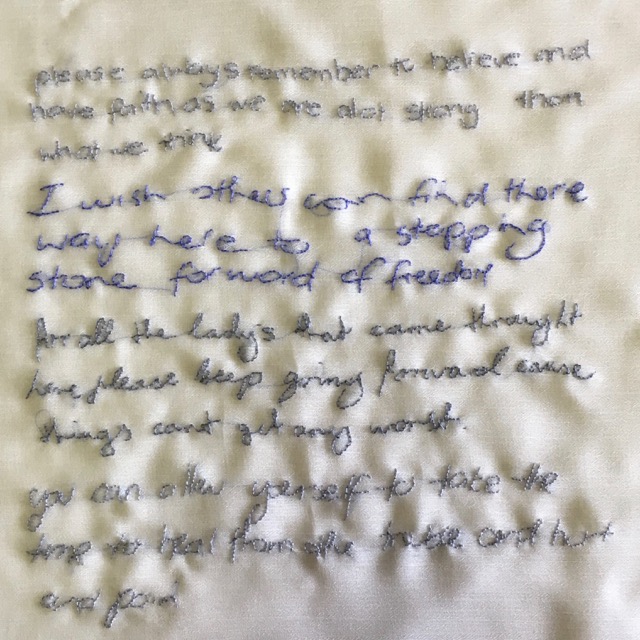 please always remember to believe and
have faith as we are alot strong than
what we think
I wish others can find there
way here to a stepping
stone forward of freedom
for all the lady's that came throught
here please keep going forward cause
things cant get any worst.
you can allow yourself to take the
time to heal from the and hurt
and pain